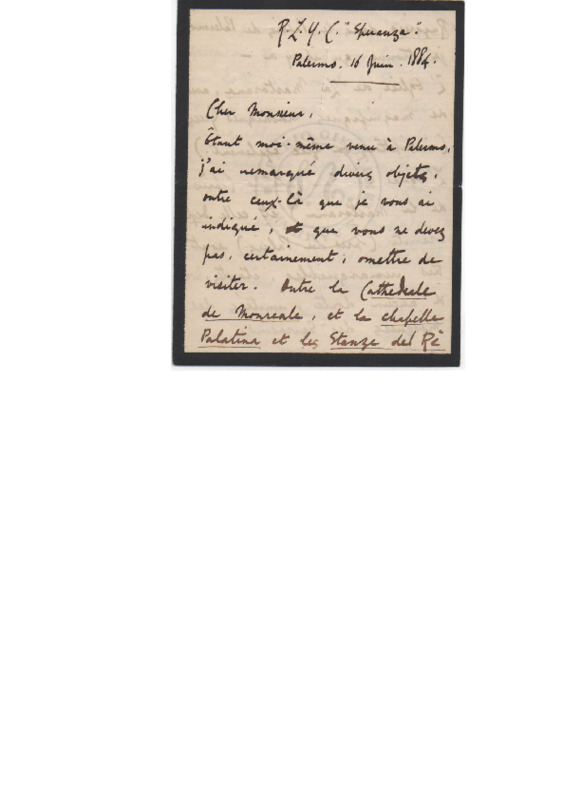 R. T. Y. C. "Speranza".
Palermo. 16 Juin. 1884.
Cher Monsieur,
Étant moi-même venu à Palermo,
j'ai remarqué divers objets,
outre ceux-là que je vous ai
indiqué, et que vous ne devez
pas, certainement, omettre de
visiter. Outre la Cathedrale
de Monreale, et la chapelle
Palatina et les Stanze del Rè